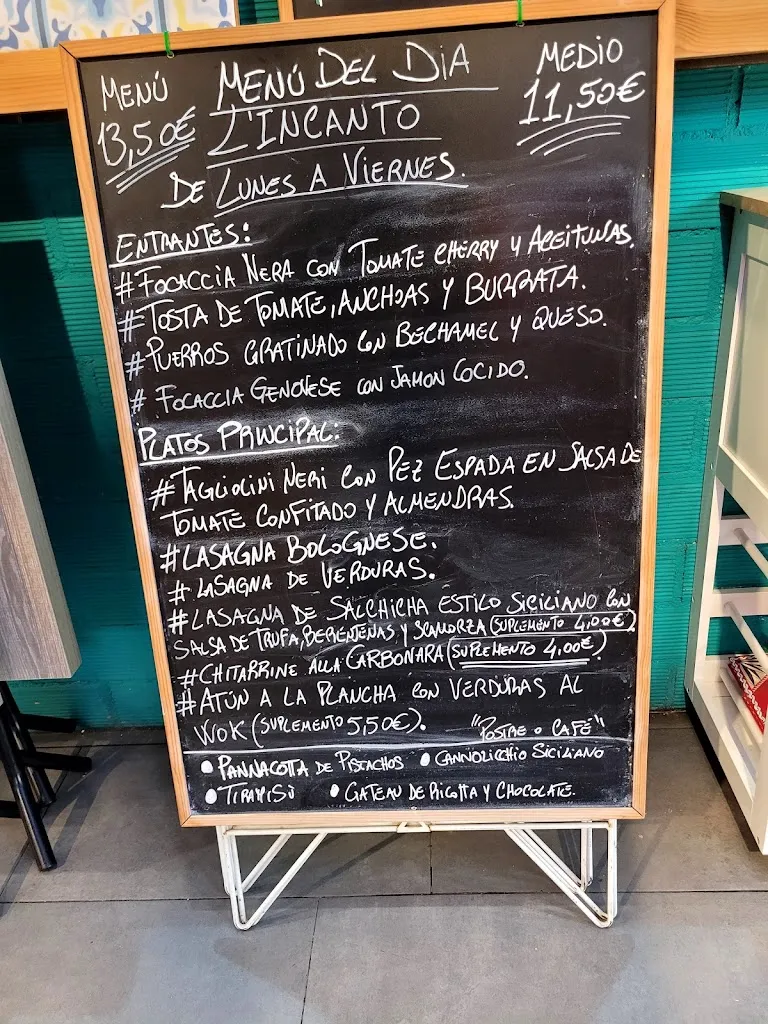 MENÚ MENÚ DEL DIA MEDIO
13,50€ L'INCANTO 11,50€
DE LUNES A VIERNES.
ENTRANTES:
#FOCACCIA NERA CON TOMATE CHERRY Y ACEITUNAS.
#TOSTA DE TOMATE, ANCHOAS Y BURRATA.
#PUERROS GRATINADO CON BECHAMEL Y QUESO.
# FOCACCIA GENOVESE CON JAMON COCIDO.
PLATOS PRINCIPAL:
#TAGLIOLINI NERI CON PEZ ESPADA EN SALSA DE
TOMATE CONFITADO Y ALMENDRAS.
#LASAGNA BOLOGNESE.
# LASAGNA DE VERDURAS.
#LASAGNA DE SALCHICHA ESTILO SICILIANO CON
SALSA DE TRUFA, BERENJENAS, Y SCAMORZA (SUPLEMENTO 4,00€)
#CHITARRINE ALLA CARBONARA (SUPLEMENTO 4,00€).
#ATÚN A LA PLANCHA CON VERDURAS AL
WOK (SUPLEMENTO 5,50€). "POSTRE O CAFÉ"
• PANNACOTTA DE PISTACHOS • CANNOLICCHIO SICILIANO
• TIRAMISÙ • GATEAU DE RICOTTA Y CHOCOLATE.